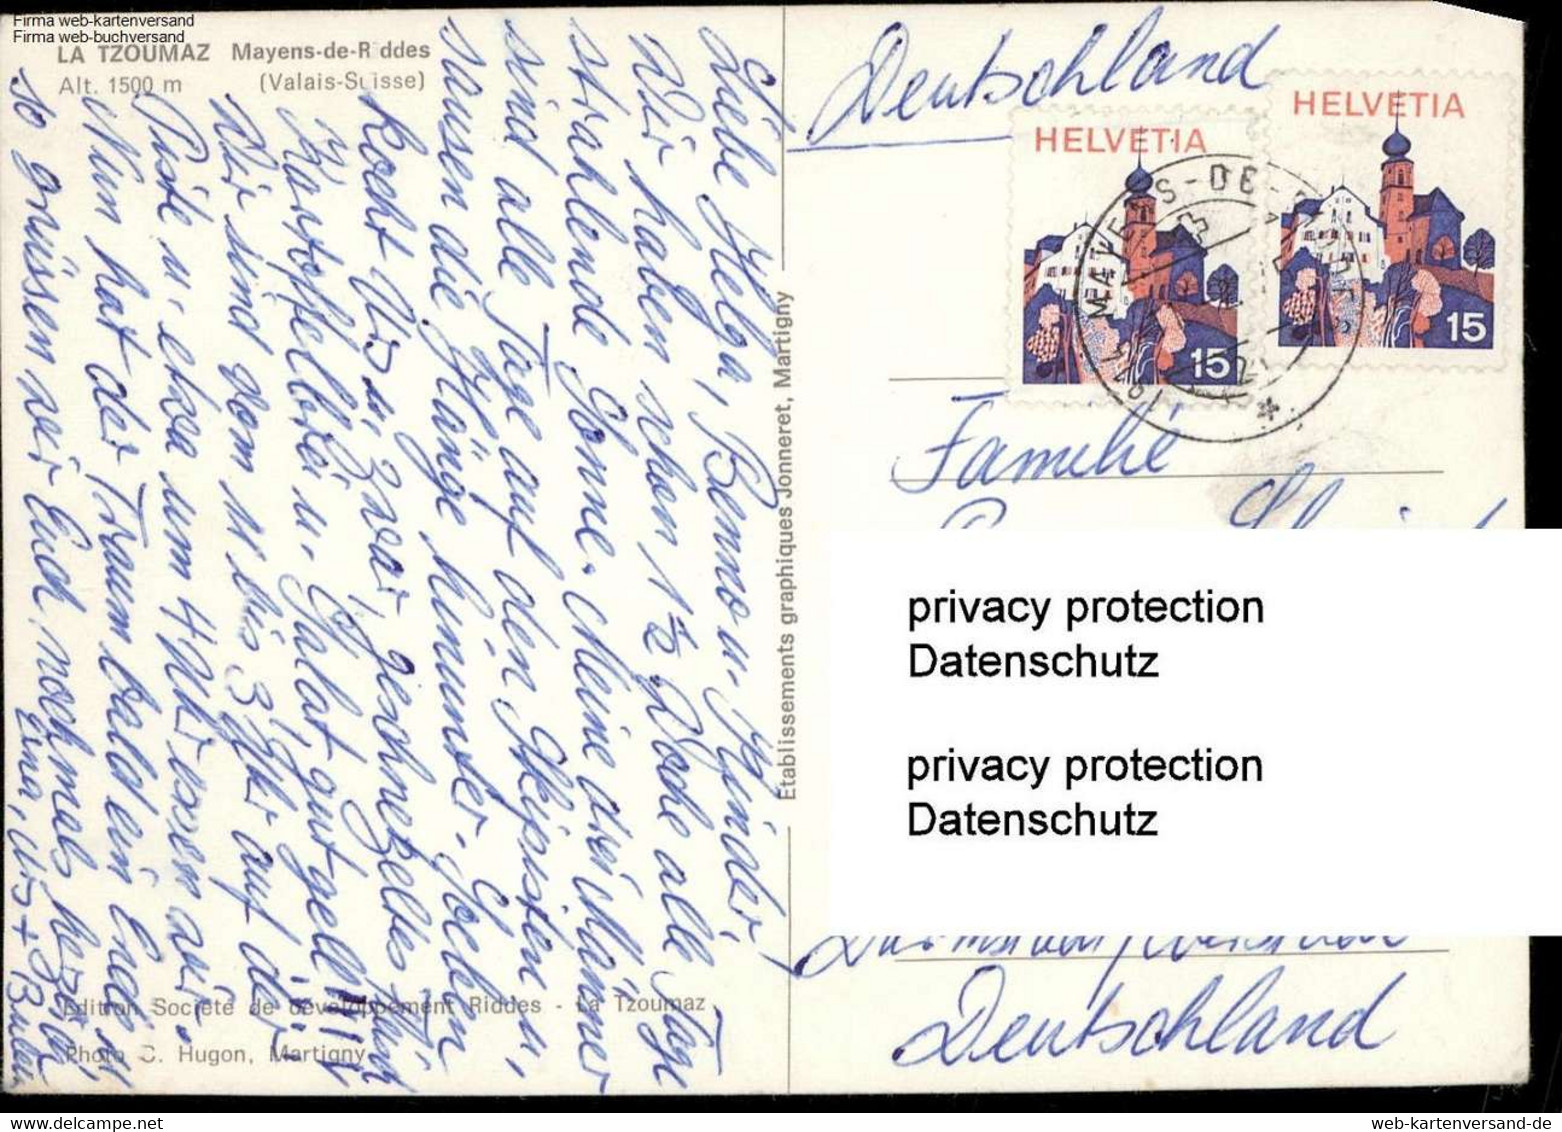 Firma web-kartenversand
Firma web-buchversand
LA TZOUMAZ Mayens-de-R ddes
Alt. 1500 m (Valais-Suisse)
Liebe Helga, Benno u. Kinder,
Wir haben schon 1½ Woche alle Tage
strahlende Sonne. Meine drei Männer
sind alle Tage auf den Skipisten u.
sausen die Hänge hinunter. Soeben
kocht Urs u. zwar, geschnetzeltes
Kartoffelbrei u. Salat gut gell!!!!
Wir sind vom 11 bis 3 Uhr auf der
Piste u. etwa um 4 Uhr essen wir.
Nun hat der Traum bald ein Ende u.
so grüssen wir Euch nochmals herzlich
Erna, Urs +
Edition Société de développement Riddes - La Tzoumaz
Photo C. Hugon, Martigny
Etablissements graphiques Jonneret, Martigny
Deutschland
HELVETIA
15
HELVETIA
15
MAYENS-DE-
Familie
privacy protection
Datenschutz
privacy protection
Datenschutz
Deutschland
web-kartenversand@web-kartenversand-de